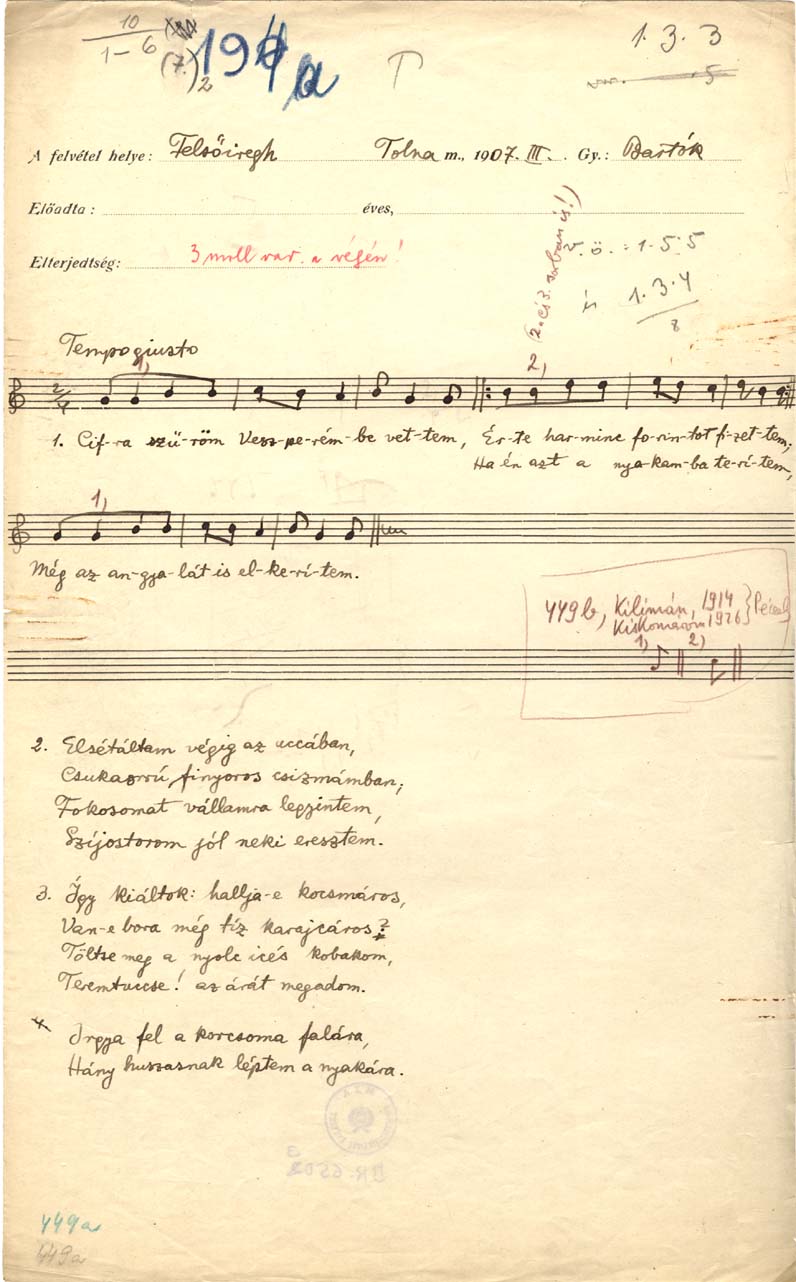 10
1–6
(7.)
2
19
a
T
1. 3. 3
var. 5
A felvétel helye: Felsőiregh Tolna m., 1907. III. Gy.: Bartók
Előadta: éves,
Elterjedtség: 3 moll var. a végén!
v. ö. : 1. 5. 5
és 1. 3. 4
8
(2. és 3. sorban is!)
Tempo giusto
1) 2)
2/4
1. Cif-ra szű-röm Vesz-pe-rém-be vet-tem, Ér-te har-minc fo-rin-tot fi-zet-tem;
Ha én azt a nya-kam-ba te-rí-tem,
1)
Még az an-gya-lát is el-ke-rí-tem.
449b, Kilimán, 1914
Kiskomárom 1926
1) 2)
2. Elsétáltam végig az uccában,
Csukaorrú, finyoros csizmámban;
Fokosomat vállamra legyintem,
Szíjostorom jól neki eresztem.
3. Így kiáltok: hallja-e kocsmáros,
Van-e bora még tíz karajcáros?
Töltse meg a nyolc icés kobakom,
Teremtuccse! az árát megadom.
4 Irgya fel a korcsoma falára,
Hány huszasnak léptem a nyakára.
449a
449a